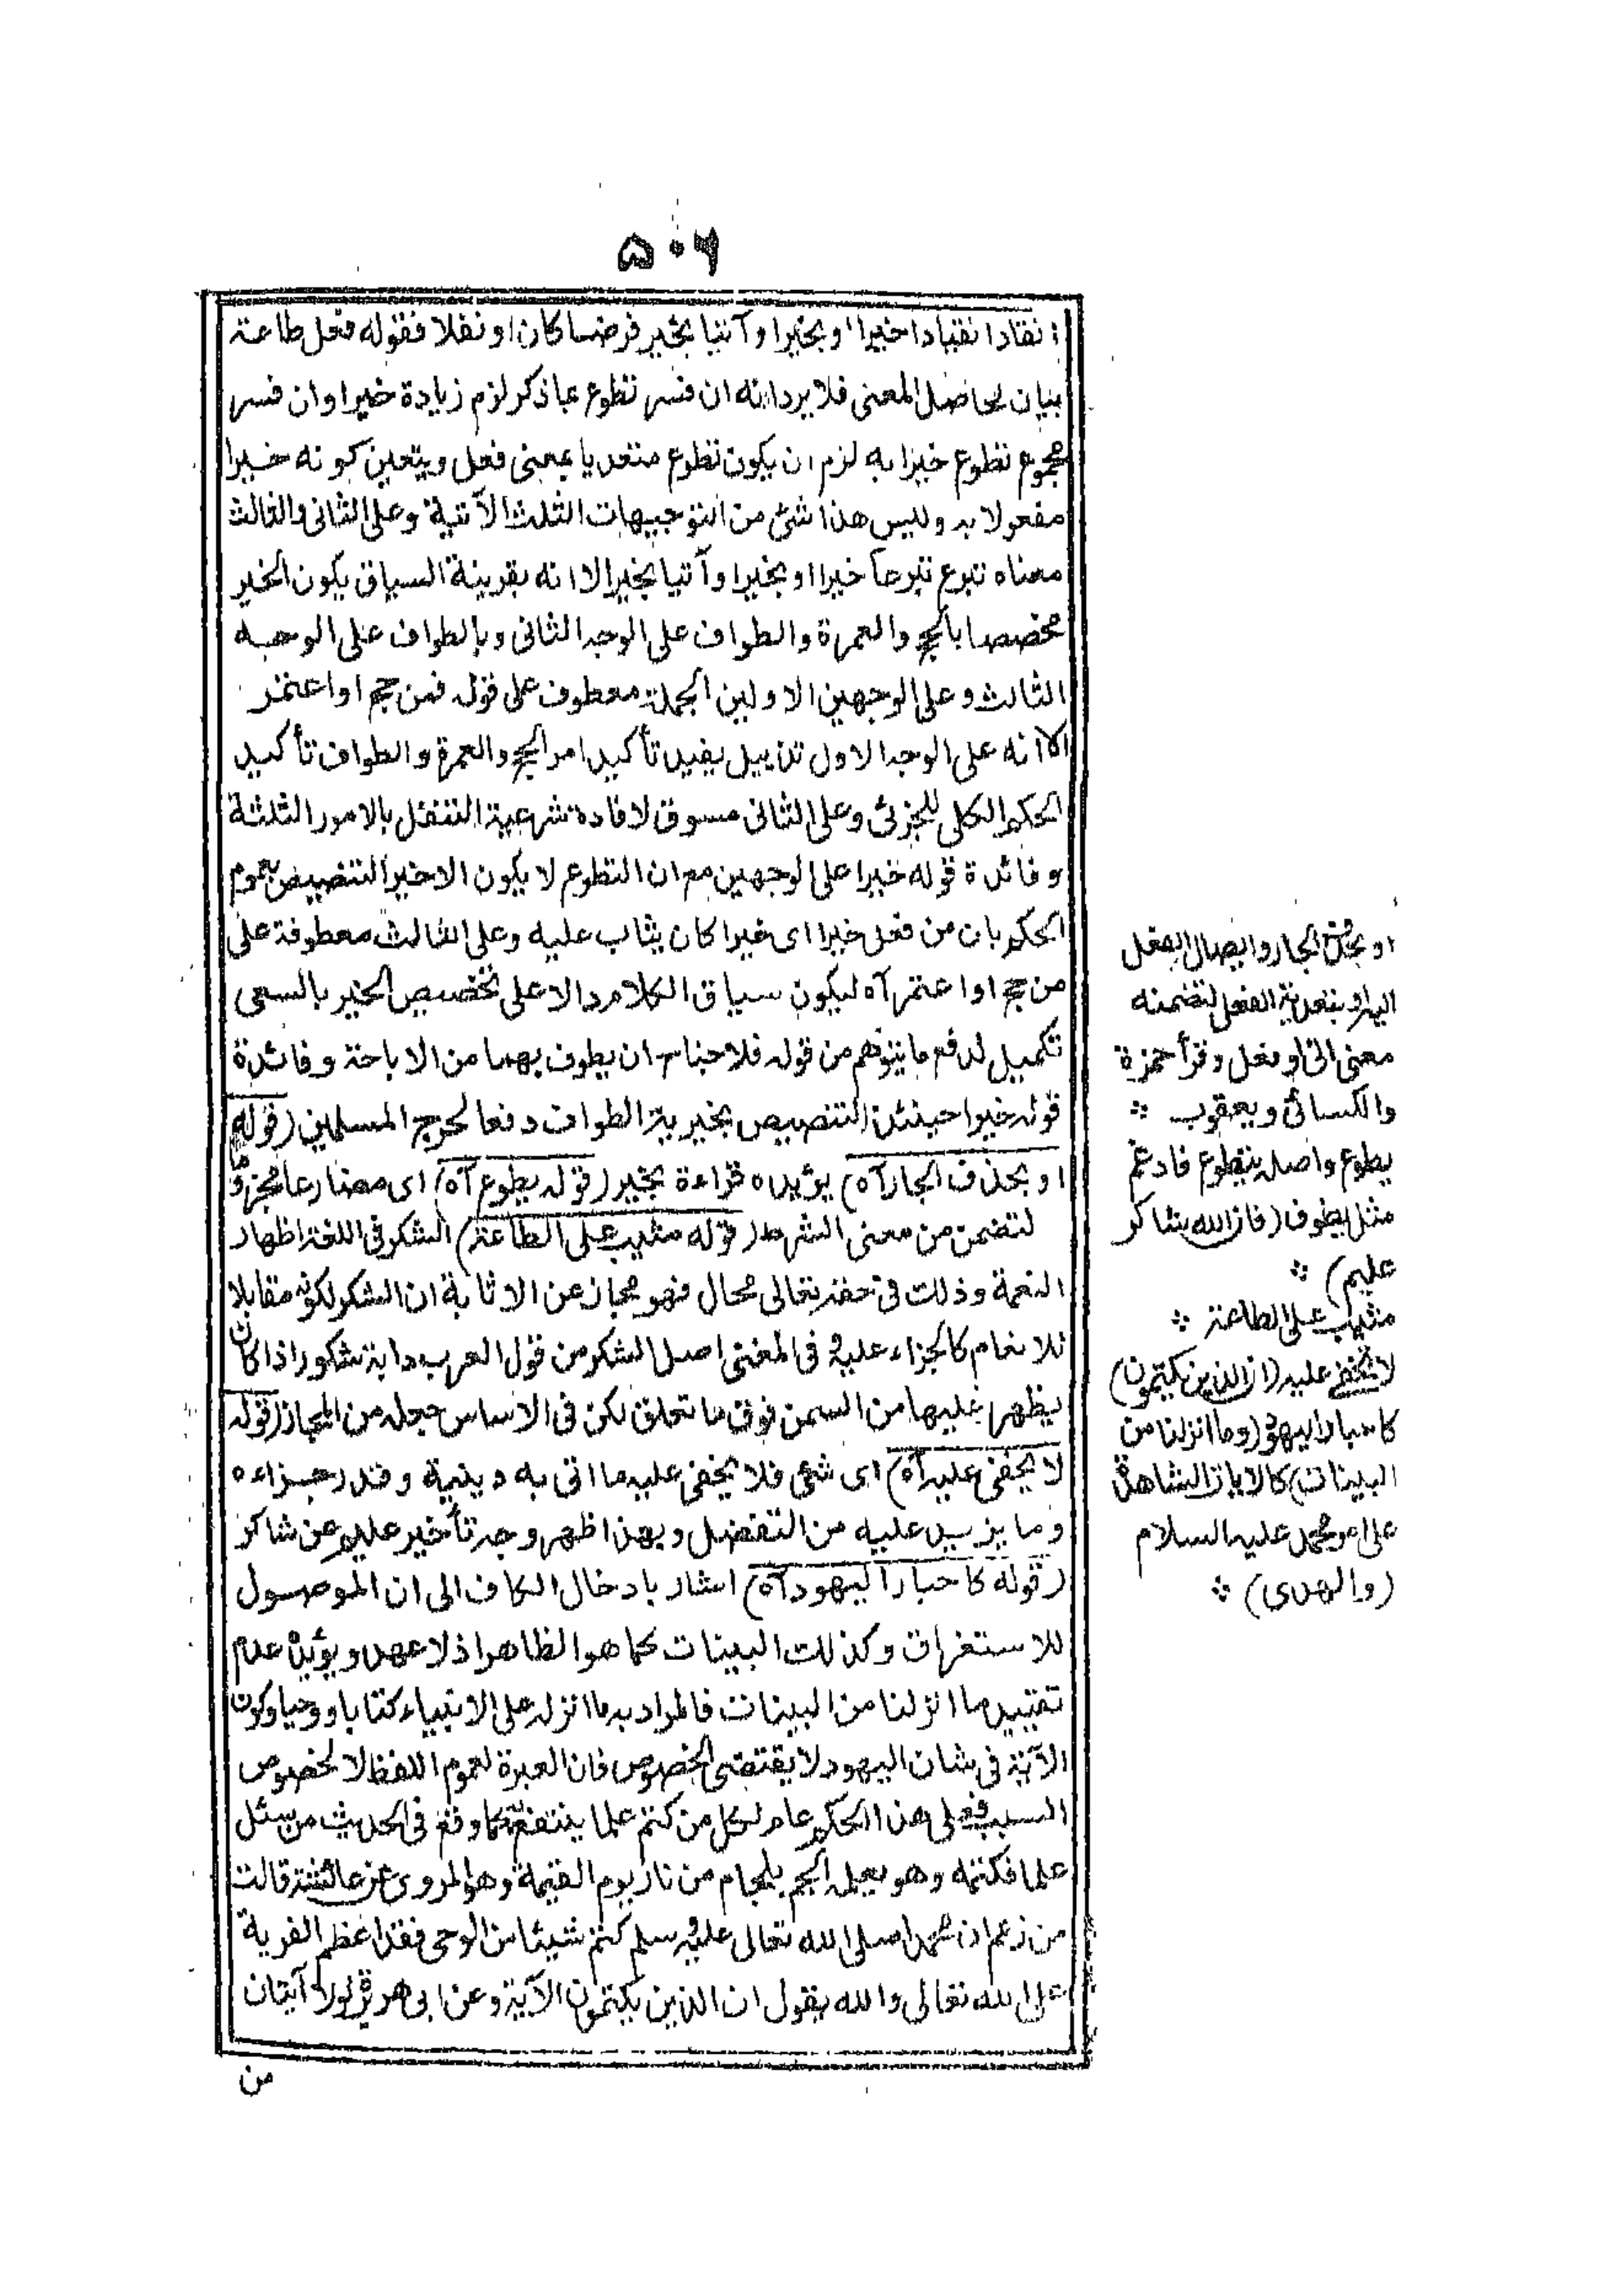 ۵۰۶
انقاد انقيادا خيرا او بخير او آتيا بخير فرضا كان او نفلا فقوله فعل طاعة
بيان لحاصل المعنى فلا يرد انه ان فسر تطوع بما ذكر لزم زيادة خيرا وان فسر
مجموع تطوع خيرا به لزم ان يكون تطوع متعديا بمعنى فعل ويتعين كونه خيرا
مفعولا به وليس هذا شئ من التوجيهات الثلث الآتية وعلى الثانى والثالث
معناه تبرع تبرعا خيرا او بخير او آتيا بخير الا انه بقرينة السياق يكون الخير
مخصصا بالحج والعمرة والطواف على الوجه الثانى وبالطواف على الوجه
الثالث وعلى الوجهين الاولين الجملة معطوف على قوله فمن حج او اعتمر
الا انه على الوجه الاول تذييل يفيد تأكيد امر الحج والعمرة والطواف تأكيد
الحكم الكلى للجزئى وعلى الثانى مسوق لافادة شرعية التنفل بالامور الثلثة
وفائدة قوله خيرا على الوجهين مع ان التطوع لا يكون الا خيرا التنصيص بعموم
الحكم بان من فعل خيرا اى خيرا كان يثاب عليه وعلى الثالث معطوفة على
من حج او اعتمر آه ليكون سياق الكلام دالا على تخصيص الخير بالسعى
تكميل لدفع ما يتوهم من قوله فلا جناح ان يطوف بهما من الاباحة وفائدة
قوله خيرا حينئذ التنصيص بخيرية الطواف دفعا لحرج المسلمين (قوله
او بحذف الجار آه) يؤيده قراءة بخير (قوله يطوع آه) اى مضارعا مجزوما
لتضمن من معنى الشرط (قوله مثيب على الطاعة) الشكر فى اللغة اظهار
النعمة وذلك فى حقه تعالى محال فهو مجاز عن الاثابة ان الشكر لكونه مقابلا
للانعام كالجزاء عليه و فى المغنى اصل الشكر من قول العرب دابة شكور اذا كان
يظهر عليها من السمن فوق ما تعلق لكن فى الاساس جعله من المجاز (قوله
لا يخفى عليه آه) اى شئ فلا يخفى عليه ما اتى به دينية وقدر جزاءه
وما يزيد عليه من التفضل وبهذا ظهر وجه تأخير عليم عن شاكر
(قوله كاحبار اليهود آه) اشار بادخال الكاف الى ان الموصول
للاستغراق وكذلك البينات كما هو الظاهر اذ لا عهد ويؤيده عدم
تقييد ما انزلنا من البينات فالمراد به ما انزله على الانبياء كتابا او وحيا وكون
الآية فى شان اليهود لا يقتضى الخصوص فان العبرة لعموم اللفظ لا لخصوص
السبب فعلى هذا الحكم عام لكل من كتم علما ينتفع به كما وقع فى الحديث من سئل
علما فكتمه وهو يعلمه الجم بلجام من نار يوم القيمة وهو المروى عن عائشة قالت
من زعم ان محمدا صلى الله تعالى عليه وسلم كتم شيئا من الوحى فقد اعظم الفرية
على الله تعالى والله يقول ان الذين يكتمون الآية وعن ابى هريرة لولا آيتان
من
او بحذف الجار وايصال الفعل
اليه او بتعدية الفعل لتضمنه
معنى اتى او فعل وقرأ حمزة
والكسائى ويعقوب
يطوع واصله يتطوع فادغم
مثل يطوف (فان الله شاكر
عليم)
مثيب على الطاعة
لا تخفى عليه (ان الذين يكتمون)
كاحبار اليهود (وما انزلنا من
البينات) كالايات الشاهدة
على امر محمد عليه السلام
(والهدى)